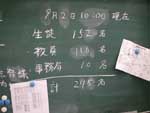 8月2日 10:00 現在
生徒 152名
教員 113名
事務局 10名
計 275名